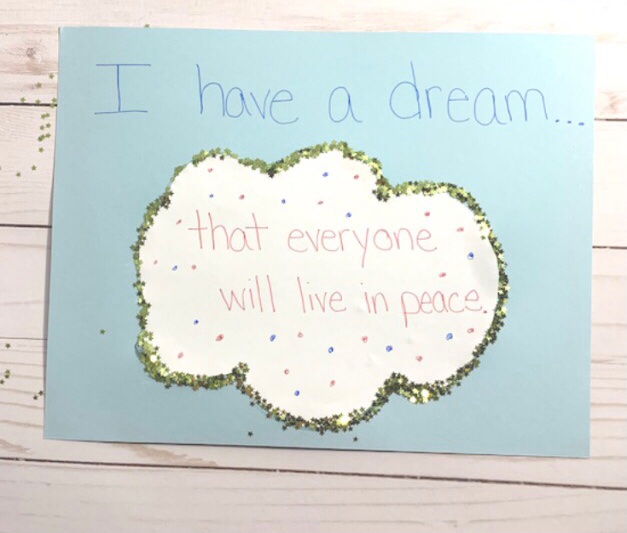 I have a dream...
that everyone
will live in peace.